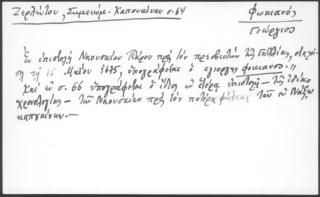 Ζερλέντου, Σημείωμ. Καπουκίνων σ. 64
Φωκιανός
Γεώργιος
Ἐν ἐπιστολῇ Ναουσαίων Πάρου πρὸς τὸν πρεσβευτὴν τῆς Γαλλίας,
τῇ 15 Μαΐου 1675, ὑπογράφεται ὁ γιωργης φοκιανος.
Καὶ ἐν σ. 66 ὑπογράφεται ὁ ἴδιος ἐν ἑτέρᾳ ἐπιστολῇ — τῆς ἰδίας
χρονολογίας — τῶν Ναουσαίων πρὸς τὸν πατέρα τῶν ἐν Νάξῳ
καπουκίνων.—